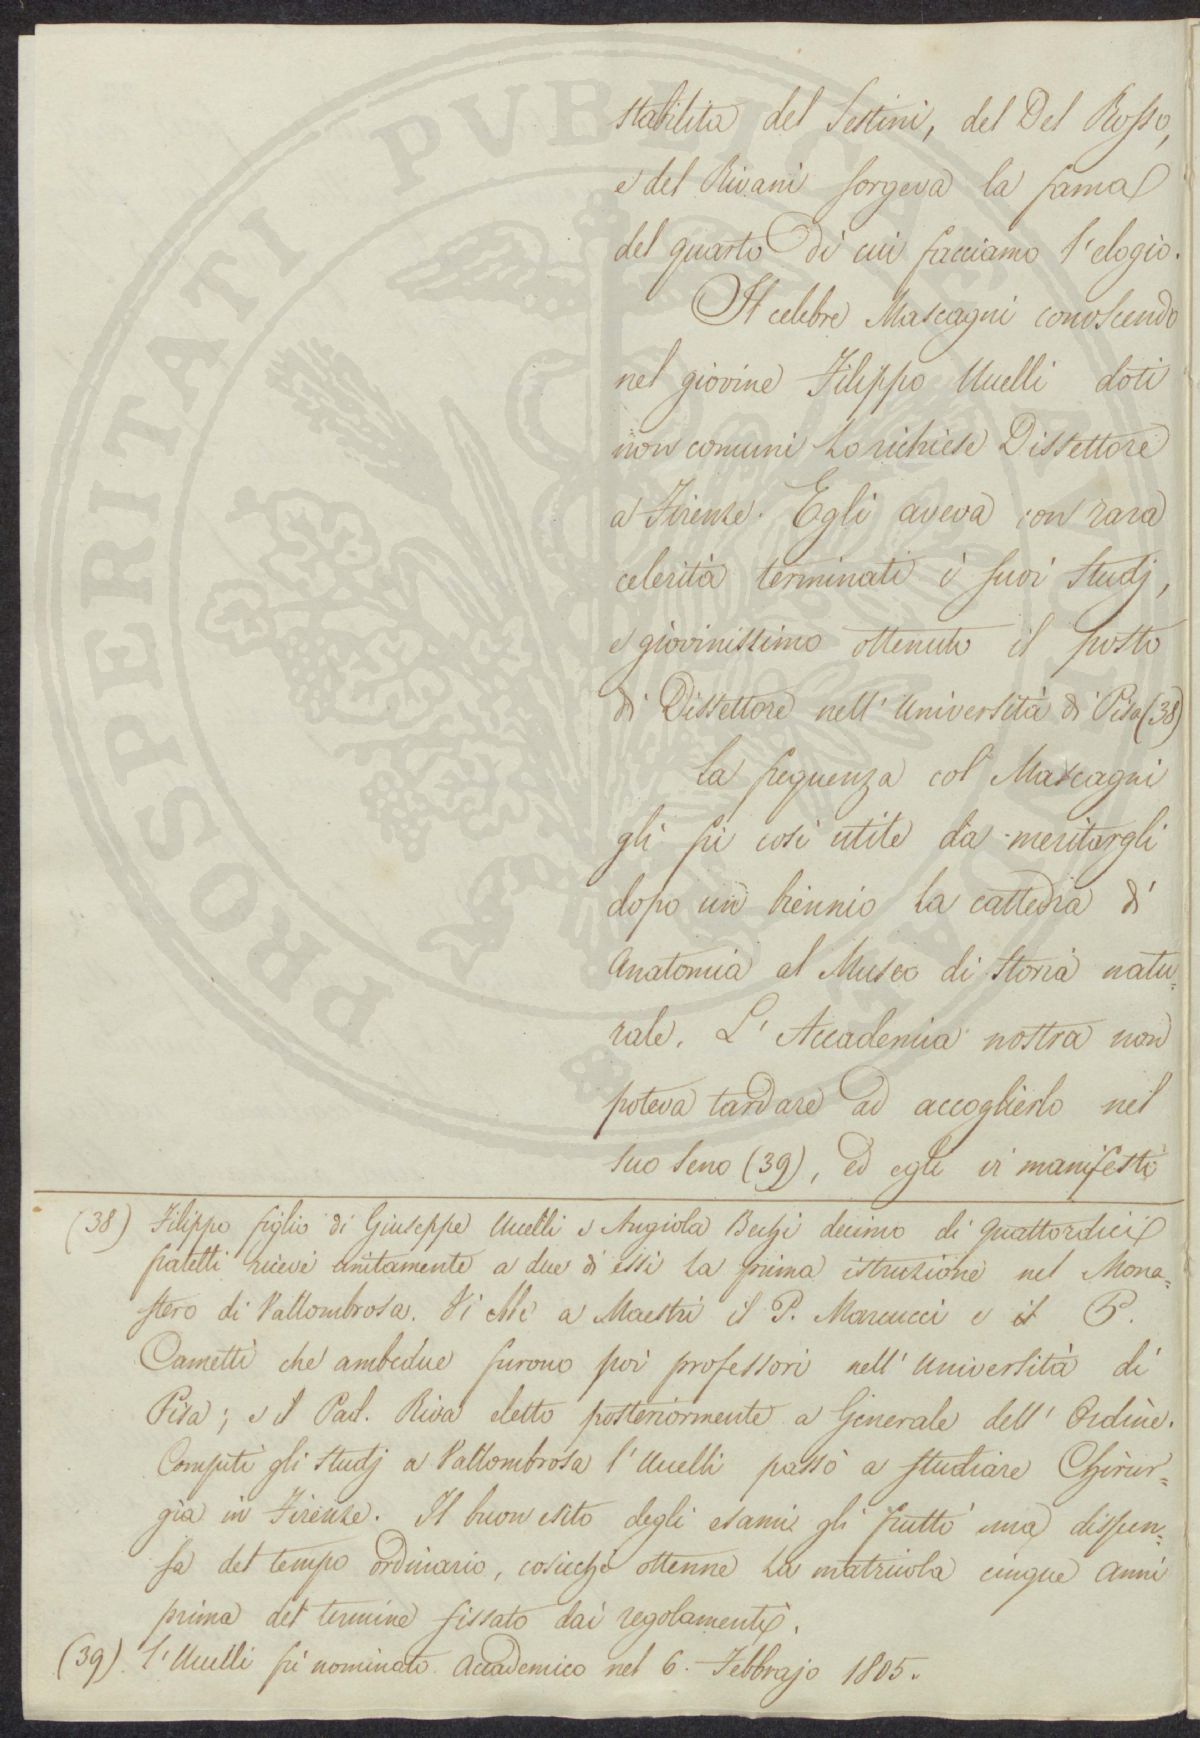 stabilita del Sestini, del Del Rosso,
e del Rivani sorgeva la fama
del quarto di cui facciamo l'elogio.
Il celebre Mascagni conoscendo
nel giovine Filippo Uccelli doti
non comuni lo richiese Dissettore
a Firenze. Egli aveva con rara
celerità terminati i suoi studj,
e giovinissimo ottenuto il posto
di Dissettore nell'Università di Pisa (38)
La frequenza col Mascagni
gli fù così utile da meritargli
dopo un biennio la cattedra di
Anatomia al Museo di storia natu=
rale. L'Accademia nostra non
poteva tardare ad accoglierlo nel
suo seno (39), ed egli vi manifestò
(38) Filippo figlio di Giuseppe Uccelli e Angiola Bechi decimo di quattordici
fratelli ricevè unitamente a due di essi la prima istruzione nel Mona=
stero di Vallombrosa. Vi ebbe a Maestri il P. Marcucci e il P.
Cametti che ambedue furono poi professori nell'Università di
Pisa; e il Pad. Riva eletto posteriormente a Generale dell'Ordine.
Compiti gli studj a Vallombrosa l'Uccelli passò a studiare Chirur=
gia in Firenze. Il buon esito degli esami gli fruttò una dispen=
sa del tempo ordinario, cosicchè ottenne la matricola cinque anni
prima del termine fissato dai regolamenti.
(39) L'Uccelli fù nominato Accademico nel 6. Febbrajo 1805.
PROSPERITATI PVBLICAE